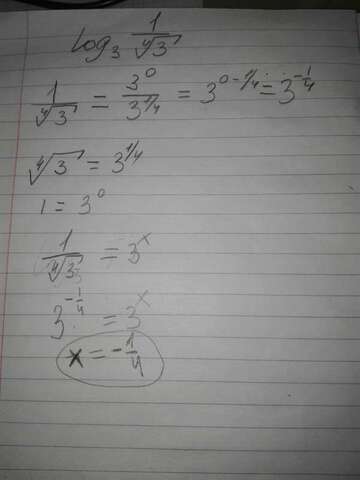 log₃ 1/∜3
1/∜3 = 3⁰/3^(1/4) = 3^(0-1/4) = 3^(-1/4)
∜3 = 3^(1/4)
1 = 3⁰
1/∜3 = 3^x
3^(-1/4) = 3^x
x = -1/4